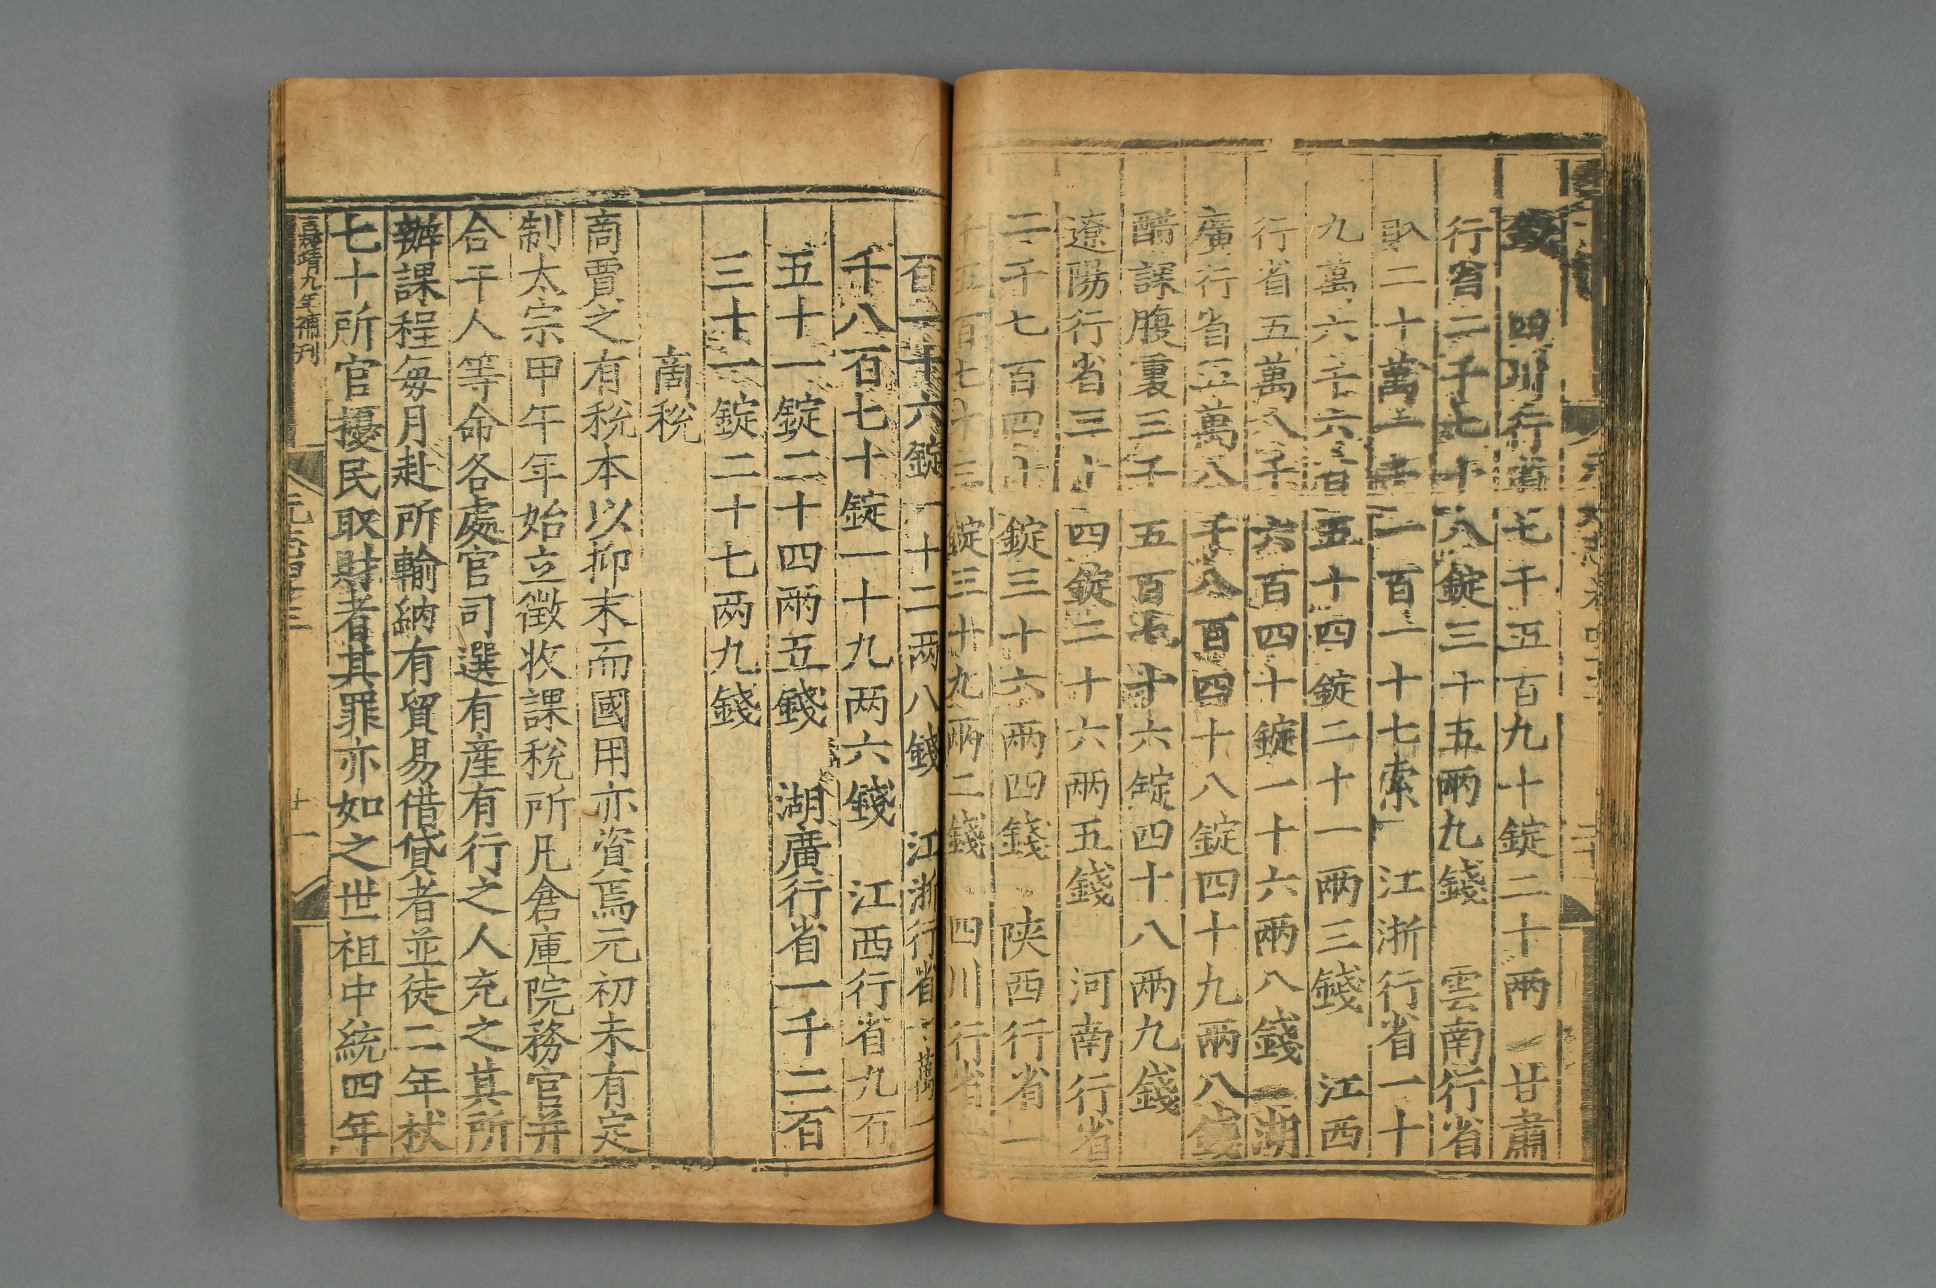 錢 四川行省七千五百九十錠二十兩 甘肅
行省二千七十八錠三十五兩九錢 雲南行省
二十萬一千一百一十七索 江浙行省一十
九萬六千六百五十四錠二十一兩三錢 江西
行省五萬八千六百四十錠一十六兩八錢 湖
廣行省五萬八千八百四十八錠四十九兩八錢
醋課腹裏三千五百七十六錠四十八兩九錢
遼陽行省三十四錠二十六兩五錢 河南行省
二千七百四十錠三十六兩四錢 陝西行省一
千五百七十三錠三十九兩二錢 四川行省
百一十六錠一十二兩八錢 江浙行省一萬一
千八百七十錠一十九兩六錢 江西行省九百
五十一錠二十四兩五錢 湖廣行省一千二百
三十一錠二十七兩九錢
商稅
商賈之有稅本以抑末而國用亦資焉元初未有定
制太宗甲午年始立徵收課稅所凡倉庫院務官并
合干人等命各處官司選有產有行之人充之其所
辦課程每月赴所輸納有貿易借貸者並徒二年杖
七十所官擾民取財者其罪亦如之世祖中統四年
嘉靖九年補刊
元志四十三
十一